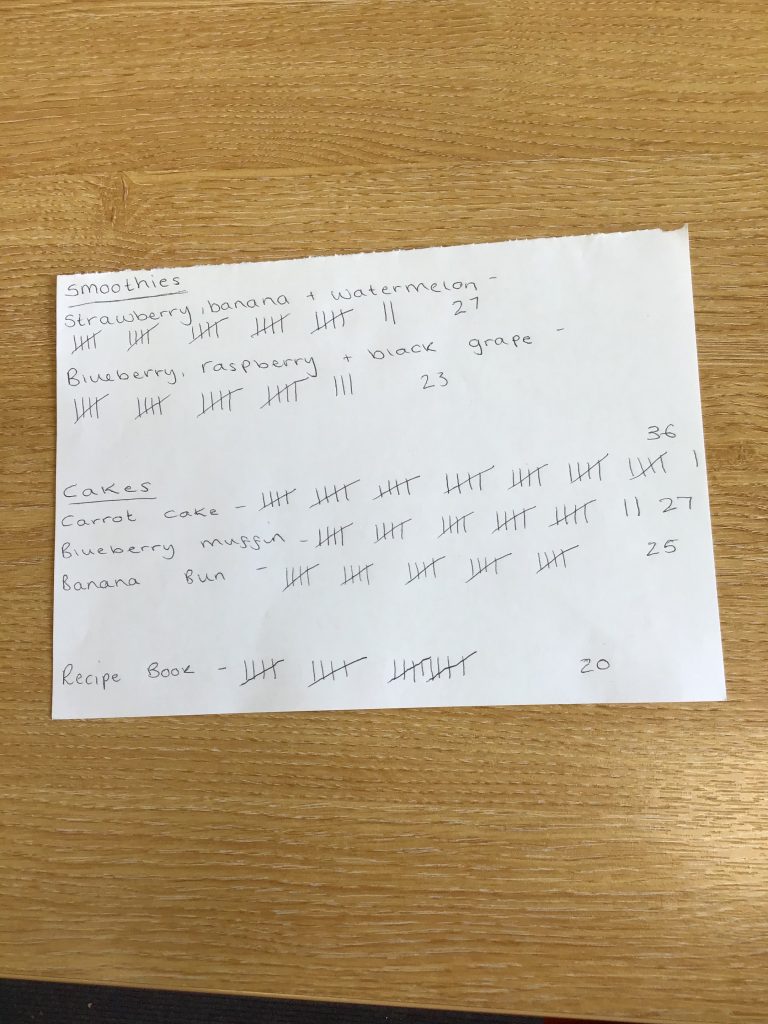 Smoothies
Strawberry, banana + watermelon -
27
Blueberry, raspberry + black grape -
23
36
Cakes
Carrot cake -
Blueberry muffin - 27
Banana Bun - 25
Recipe Book - 20